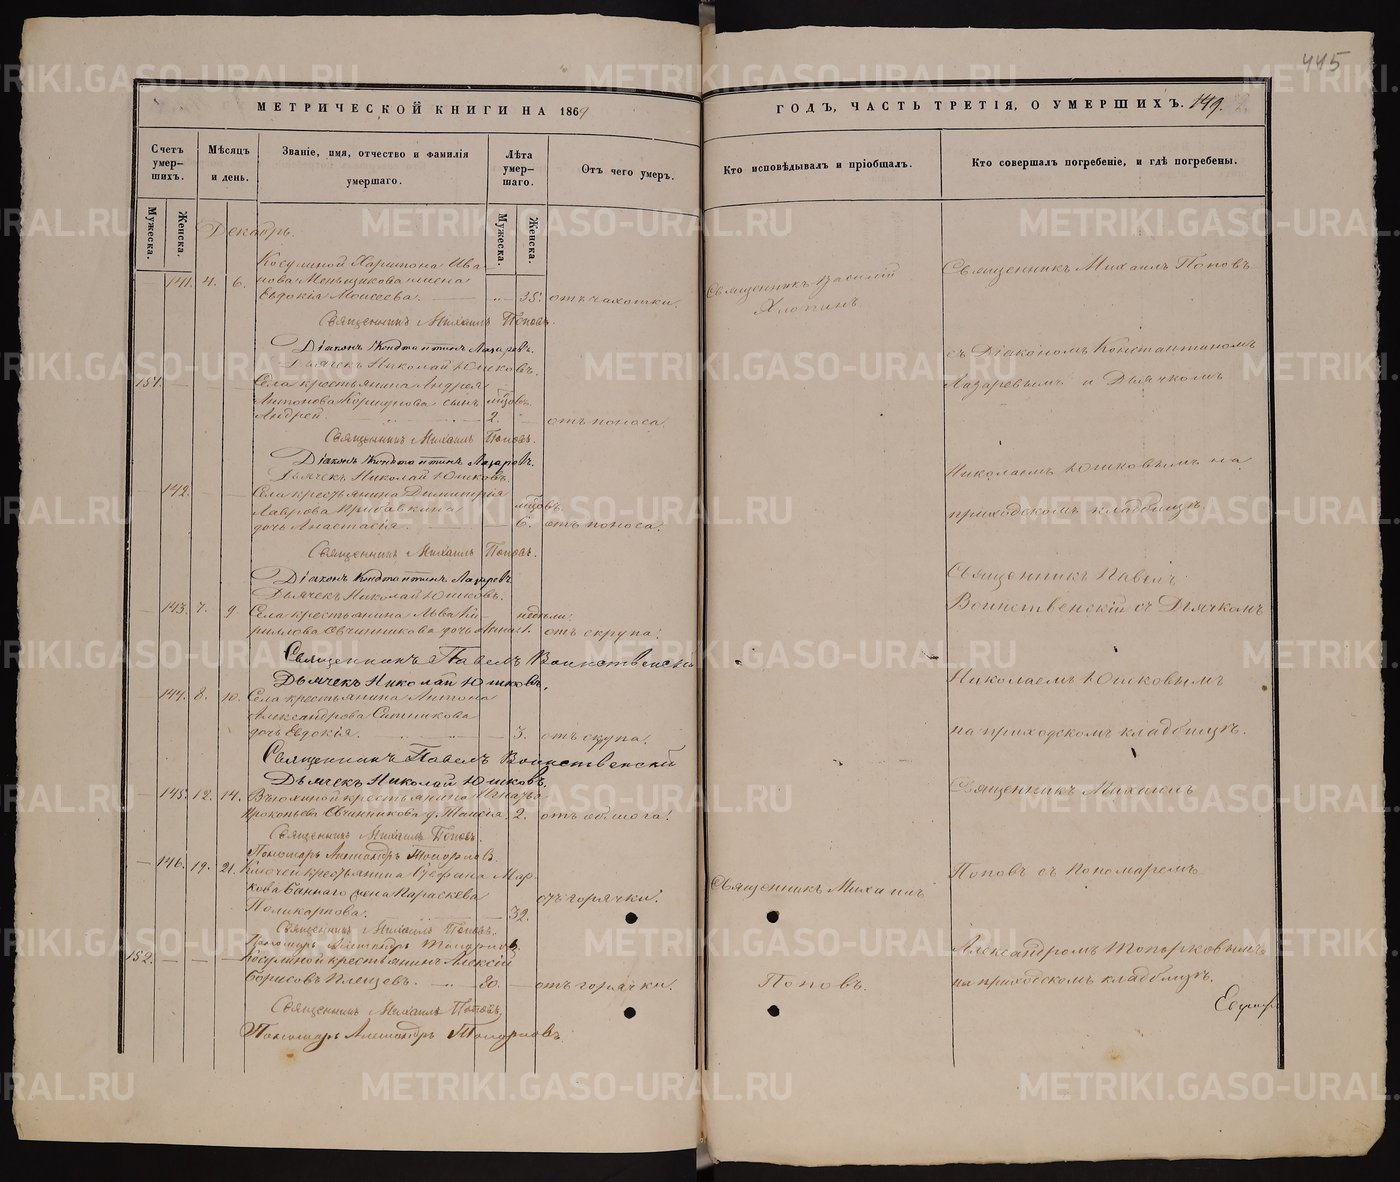 445
МЕТРИЧЕСКОЙ КНИГИ НА 1869
ГОДЪ, ЧАСТЬ ТРЕТІЯ, О УМЕРШИХЪ. 149.
Счетъ умер-
шихъ.
Мужеска.
Женска.
Мѣсяцъ
и день.
Званіе, имя, отчество и фамилія
умершаго.
Лѣта
умер-
шаго.
Мужеска.
Женска.
Отъ чего умеръ.
Кто исповѣдывалъ и пріобщалъ.
Кто совершалъ погребеніе, и гдѣ погребены.
Декабрь.
Харитона Ива-
141. 4. 6. нова Меньщикова жена
Евдокія Моисеева. 35. отъ чахотки.
Священникъ Василій
Хлопинъ
Священникъ Михаилъ Поповъ
Священникъ Михаилъ Поповъ.
Діаконъ Константинъ Лазаревъ.
Дьячекъ Николай Юшковъ.
съ Діакономъ Константиномъ
151. Села крестьянина Андрея
Лазаревымъ и Дьячкомъ
Антонова Коршунова сынъ мѣсцовъ.
Андрей. 2. отъ поноса.
Священникъ Михаилъ Поповъ.
Діаконъ Константинъ Лазаревъ.
Дьячекъ Николай Юшковъ.
Николаемъ Юшковымъ на
142. Села крестьянина Димитрія
Лаврова Прибавкина мѣсцовъ.
дочь Анастасія. 6. отъ поноса.
приходскомъ кладбищѣ.
Священникъ Михаилъ Поповъ.
Діаконъ Константинъ Лазаревъ
Дьячекъ Николай Юшковъ.
Священникъ Павелъ
143. 7. 9. Села крестьянина Льва Ки- недѣли.
риллова Овчинникова дочь Анна. 1. отъ скрупа.
Воинственскій съ Дьячкомъ
Священникъ Павелъ Воинственскій
Дьячекъ Николай Юшковъ.
Николаемъ Юшковымъ
144. 8. 10. Села крестьянина Антона
Александрова Ситникова
дочь Евдокія. 3. отъ скупа.
на приходскомъ кладбищѣ.
Священникъ Павелъ Воинственскій
Дьячекъ Николай Юшковъ.
145. 12. 14. крестьянина Игнатья
Прокопьева Овчинникова д. Таисія. 2. отъ обжога.
Священникъ Михаилъ
Священникъ Михаилъ Поповъ.
Пономарь Александръ Топорковъ.
146. 19. 21. Ключей крестьянина Стефана Мар-
кова жена Параскева
Поликарпова. 32. отъ горячки.
Священникъ Михаилъ
Поповъ съ Пономаремъ
Священникъ Михаилъ Поповъ.
Пономарь Александръ Топорковъ.
152. крестьянинъ Алексій
Борисовъ Плещевъ. 80. отъ горячки.
Поповъ.
Александромъ Топорковымъ
на приходскомъ кладбищѣ.
Священникъ Михаилъ Поповъ,
Пономарь Александръ Топорковъ.
METRIKI.GASO-URAL.RU